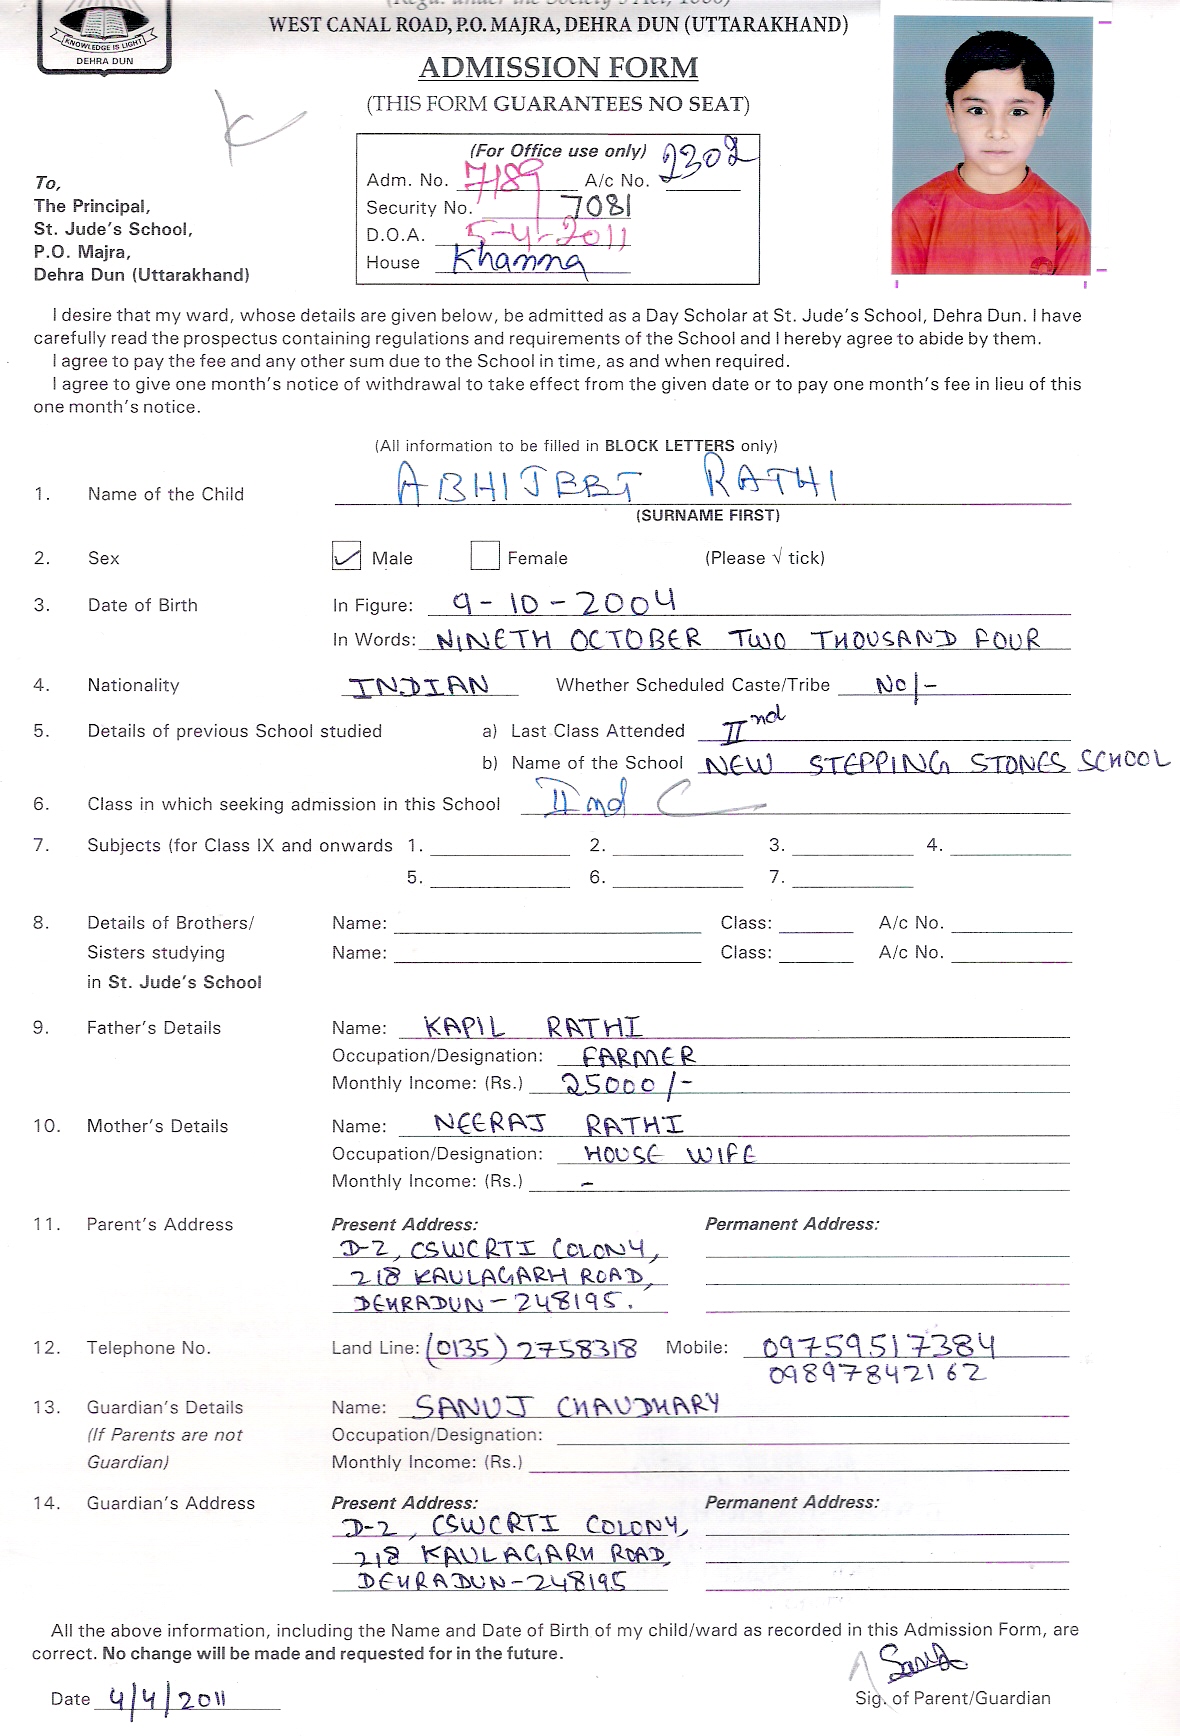 KNOWLEDGE IS LIGHT
DEHRA DUN
WEST CANAL ROAD, P.O. MAJRA, DEHRA DUN (UTTARAKHAND)
ADMISSION FORM
(THIS FORM GUARANTEES NO SEAT)
(For Office use only)
Adm. No. 7189 A/c No. 2302
Security No. 7081
D.O.A. 5-4-2011
House Khanna
To,
The Principal,
St. Jude's School,
P.O. Majra,
Dehra Dun (Uttarakhand)
I desire that my ward, whose details are given below, be admitted as a Day Scholar at St. Jude's School, Dehra Dun. I have
carefully read the prospectus containing regulations and requirements of the School and I hereby agree to abide by them.
I agree to pay the fee and any other sum due to the School in time, as and when required.
I agree to give one month's notice of withdrawal to take effect from the given date or to pay one month's fee in lieu of this
one month's notice.
(All information to be filled in BLOCK LETTERS only)
1. Name of the Child ABHIJEET RATHI
(SURNAME FIRST)
2. Sex ✓ Male Female (Please √ tick)
3. Date of Birth In Figure: 9-10-2004
In Words: NINETH OCTOBER TWO THOUSAND FOUR
4. Nationality INDIAN Whether Scheduled Caste/Tribe No/-
5. Details of previous School studied a) Last Class Attended IInd
b) Name of the School NEW STEPPING STONES SCHOOL
6. Class in which seeking admission in this School IInd C
7. Subjects (for Class IX and onwards 1. 2. 3. 4.
5. 6. 7.
8. Details of Brothers/ Name: Class: A/c No.
Sisters studying Name: Class: A/c No.
in St. Jude's School
9. Father's Details Name: KAPIL RATHI
Occupation/Designation: FARMER
Monthly Income: (Rs.) 25000/-
10. Mother's Details Name: NEERAJ RATHI
Occupation/Designation: HOUSE WIFE
Monthly Income: (Rs.) -
11. Parent's Address Present Address: Permanent Address:
D-2, CSWCRTI COLONY,
218 KAULAGARH ROAD,
DEHRADUN-248195.
12. Telephone No. Land Line: (0135) 2758318 Mobile: 09759517384
09897842162
13. Guardian's Details Name: SANUJ CHAUDHARY
(If Parents are not Occupation/Designation:
Guardian) Monthly Income: (Rs.)
14. Guardian's Address Present Address: Permanent Address:
D-2, CSWCRTI COLONY,
218 KAULAGARH ROAD,
DEHRADUN-248195
All the above information, including the Name and Date of Birth of my child/ward as recorded in this Admission Form, are
correct. No change will be made and requested for in the future.
Date 4/4/2011 Sig. of Parent/Guardian